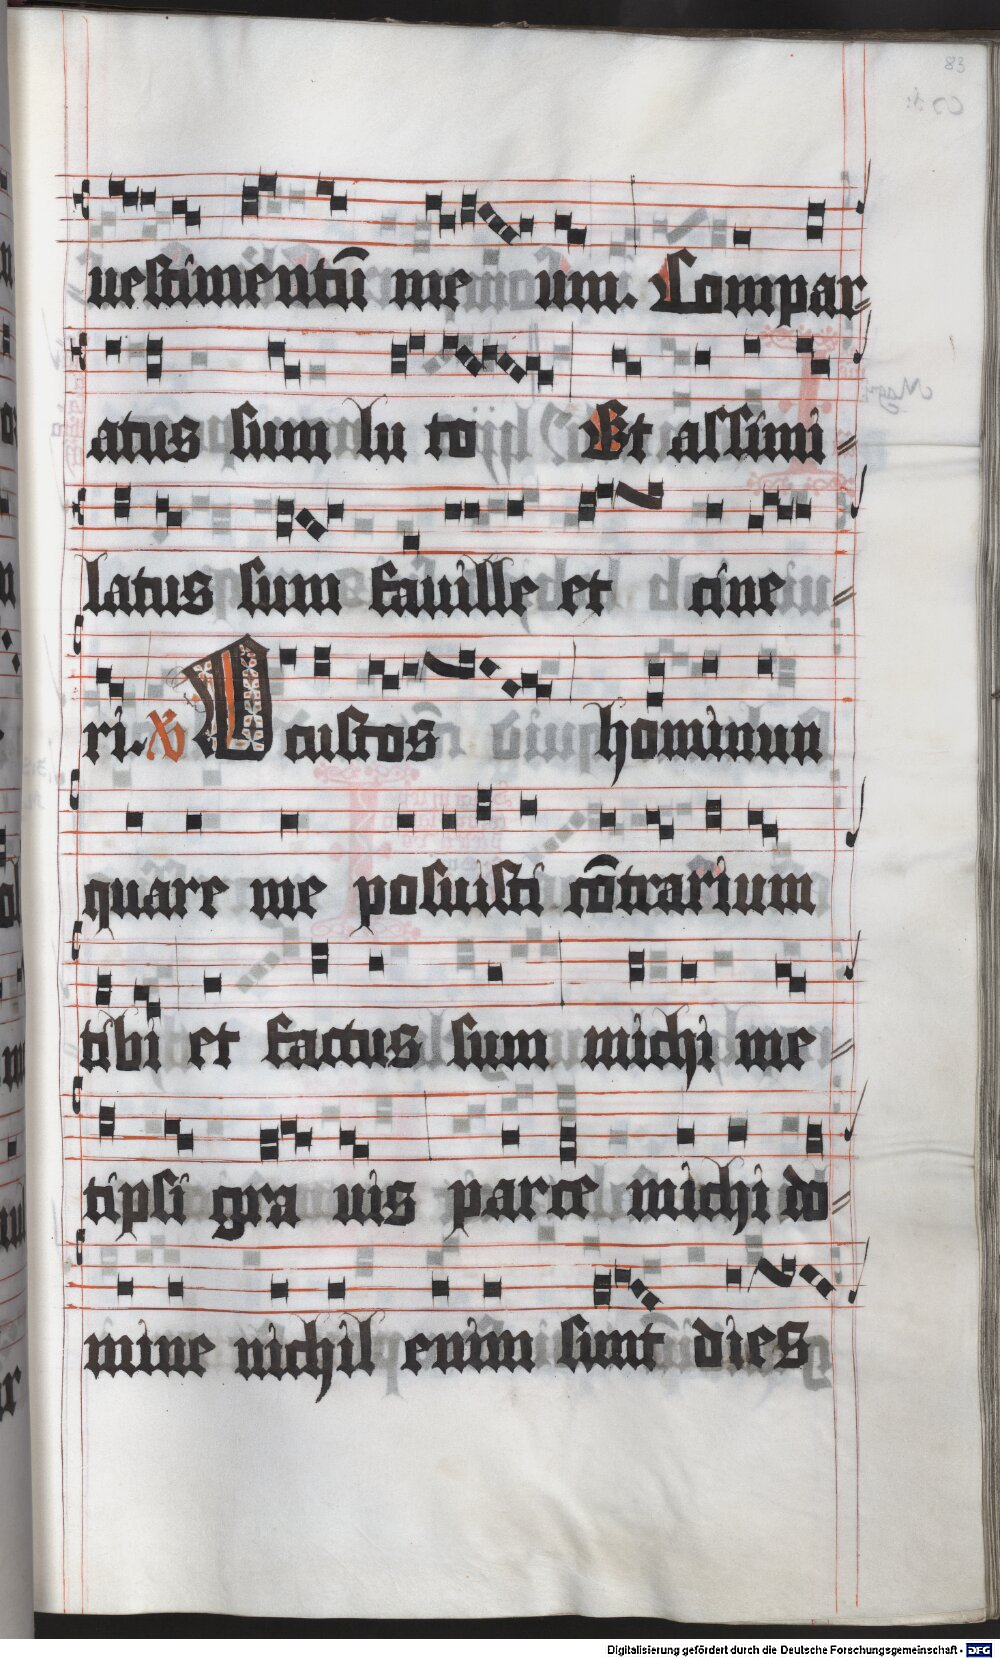 83
uestimentū me um. Compar
atus sum lu to Et assimi
latus sum fauille et cine
ri. V O custos hominum
quare me posuisti cōtrarium
tibi et factus sum michi me
tipsi gra uis parce michi do
mine nichil enim sunt dies
Digitalisierung gefördert durch die Deutsche Forschungsgemeinschaft - DFG